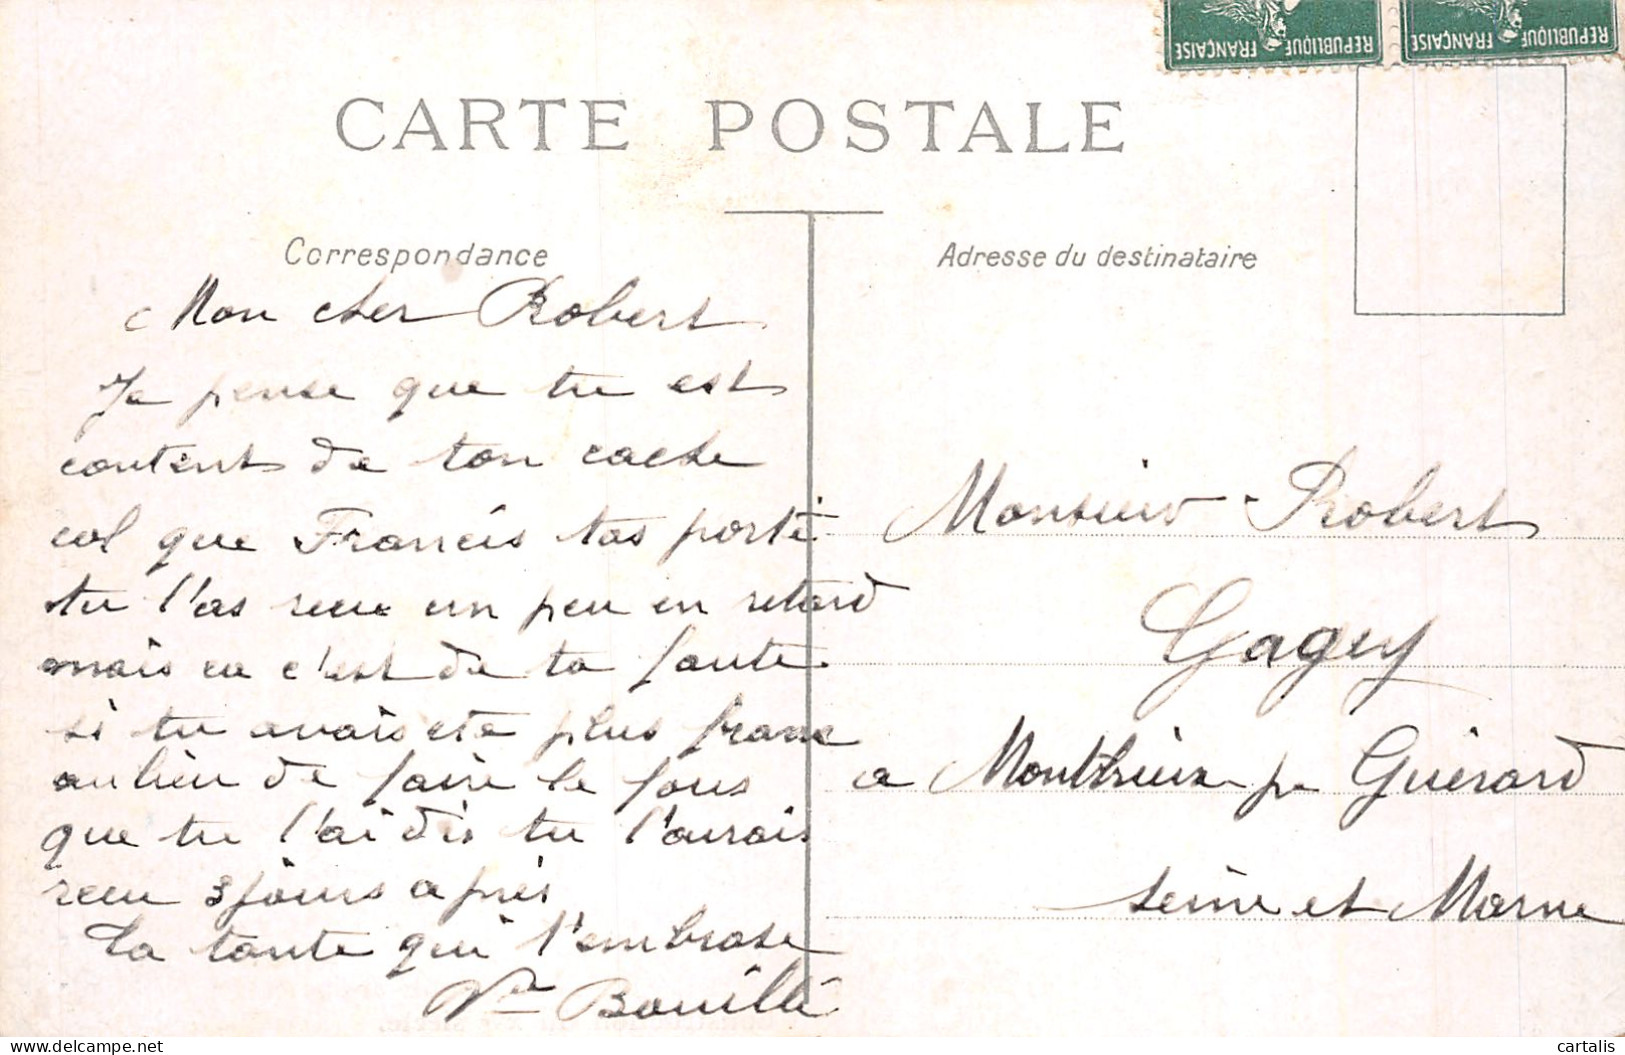 REPUBLIQUE FRANÇAISE
REPUBLIQUE FRANÇAISE
CARTE POSTALE
Correspondance
Mon cher Robert
Je pense que tu est
content de ton cache
col que Francis tas porté
tu l'as recu un peu en retard
mais ca c'est de ta faute
si tu avais ete plus franc
au lieu de faire le fous
que tu l'ai dis tu l'aurais
recu 3 jours après
ta tante qui t'embrase
Vve Bouillé
Adresse du destinataire
Monsieur Robert
Gagey
a Montbrieux pr Guérard
seine et Marne
cartalis
delcampe.net